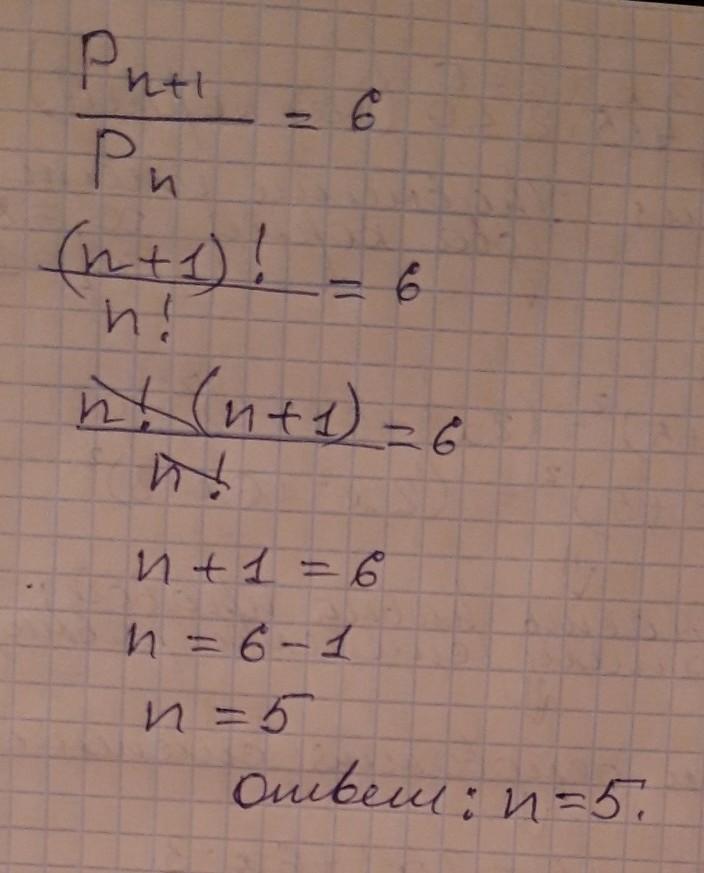 P n+1 / P n = 6
(n+1)! / n! = 6
n! (n+1) / n! = 6
n + 1 = 6
n = 6 - 1
n = 5
ответ: n = 5.